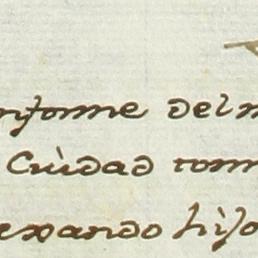 nforme del
Ciudad tom
exando hijo